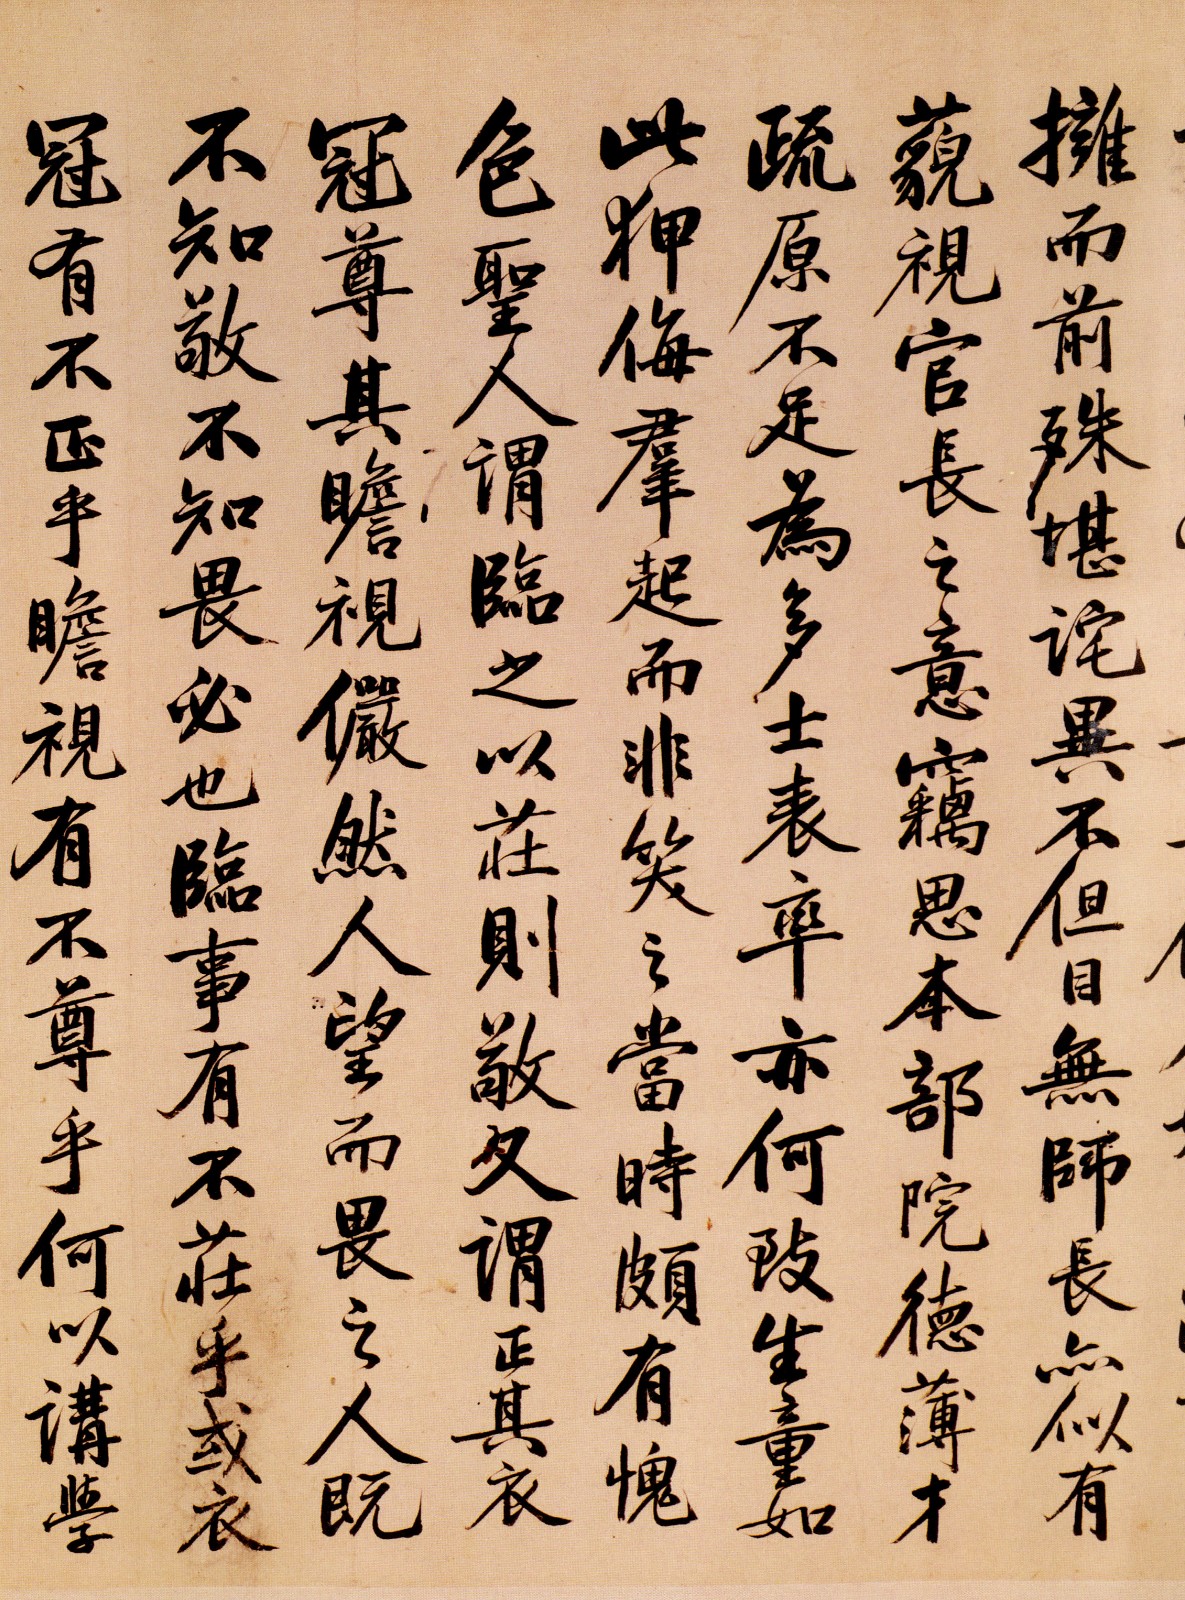 擁而前殊堪詫異不但目無師長亦似有
藐視官長之意竊思本部院德薄才
疏原不足為多士表率亦何致生童如
此狎侮羣起而非笑之當時頗有愧
色聖人謂臨之以莊則敬又謂正其衣
冠尊其瞻視儼然人望而畏之人既
不知敬不知畏必也臨事有不莊乎或衣
冠有不正乎瞻視有不尊乎何以講學